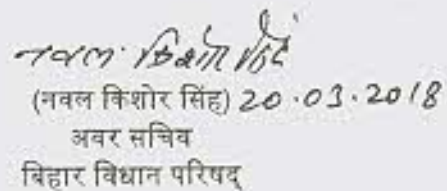 नवल किशोर सिंह
(नवल किशोर सिंह) 20.03.2018
अवर सचिव
बिहार विधान परिषद्